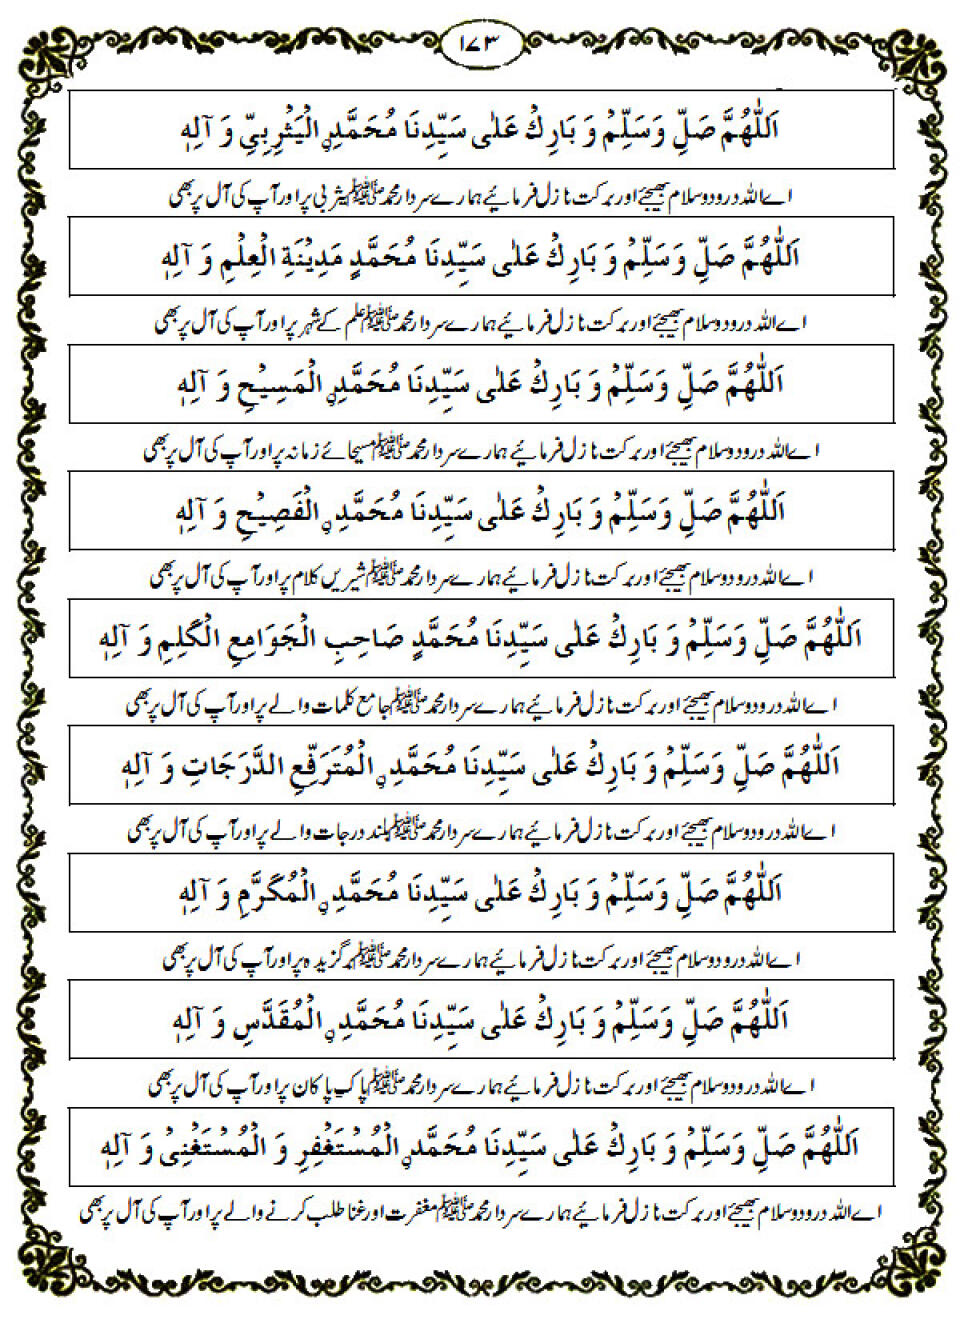 ۱۷۳
اَللّٰهُمَّ صَلِّ وَسَلِّمْ وَ بَارِكْ عَلٰى سَيِّدِنَا مُحَمَّدِنِ الْيَثْرِبِيِّ وَ آلِهٖ
اے اللہ درود و سلام بھیجئے اور برکت نازل فرمائیے ہمارے سردار محمد ﷺ یثربی پر اور آپ کی آل پر بھی
اَللّٰهُمَّ صَلِّ وَسَلِّمْ وَ بَارِكْ عَلٰى سَيِّدِنَا مُحَمَّدٍ مَدِيْنَةِ الْعِلْمِ وَ آلِهٖ
اے اللہ درود و سلام بھیجئے اور برکت نازل فرمائیے ہمارے سردار محمد ﷺ علم کے شہر پر اور آپ کی آل پر بھی
اَللّٰهُمَّ صَلِّ وَسَلِّمْ وَ بَارِكْ عَلٰى سَيِّدِنَا مُحَمَّدِنِ الْمَسِيْحِ وَ آلِهٖ
اے اللہ درود و سلام بھیجئے اور برکت نازل فرمائیے ہمارے سردار محمد ﷺ مسیحائے زمانہ پر اور آپ کی آل پر بھی
اَللّٰهُمَّ صَلِّ وَسَلِّمْ وَ بَارِكْ عَلٰى سَيِّدِنَا مُحَمَّدِنِ الْفَصِيْحِ وَ آلِهٖ
اے اللہ درود و سلام بھیجئے اور برکت نازل فرمائیے ہمارے سردار محمد ﷺ شیریں کلام پر اور آپ کی آل پر بھی
اَللّٰهُمَّ صَلِّ وَسَلِّمْ وَ بَارِكْ عَلٰى سَيِّدِنَا مُحَمَّدٍ صَاحِبِ الْجَوَامِعِ الْكَلِمِ وَ آلِهٖ
اے اللہ درود و سلام بھیجئے اور برکت نازل فرمائیے ہمارے سردار محمد ﷺ جامع کلمات والے پر اور آپ کی آل پر بھی
اَللّٰهُمَّ صَلِّ وَسَلِّمْ وَ بَارِكْ عَلٰى سَيِّدِنَا مُحَمَّدِنِ الْمُتَرَفِّعِ الدَّرَجَاتِ وَ آلِهٖ
اے اللہ درود و سلام بھیجئے اور برکت نازل فرمائیے ہمارے سردار محمد ﷺ بلند درجات والے پر اور آپ کی آل پر بھی
اَللّٰهُمَّ صَلِّ وَسَلِّمْ وَ بَارِكْ عَلٰى سَيِّدِنَا مُحَمَّدِنِ الْمُكَرَّمِ وَ آلِهٖ
اے اللہ درود و سلام بھیجئے اور برکت نازل فرمائیے ہمارے سردار محمد ﷺ برگزیدہ پر اور آپ کی آل پر بھی
اَللّٰهُمَّ صَلِّ وَسَلِّمْ وَ بَارِكْ عَلٰى سَيِّدِنَا مُحَمَّدِنِ الْمُقَدَّسِ وَ آلِهٖ
اے اللہ درود و سلام بھیجئے اور برکت نازل فرمائیے ہمارے سردار محمد ﷺ پاک پاکان پر اور آپ کی آل پر بھی
اَللّٰهُمَّ صَلِّ وَسَلِّمْ وَ بَارِكْ عَلٰى سَيِّدِنَا مُحَمَّدِنِ الْمُسْتَغْفِرِ وَ الْمُسْتَغْنِىْ وَ آلِهٖ
اے اللہ درود و سلام بھیجئے اور برکت نازل فرمائیے ہمارے سردار محمد ﷺ مغفرت اور غنا طلب کرنے والے پر اور آپ کی آل پر بھی